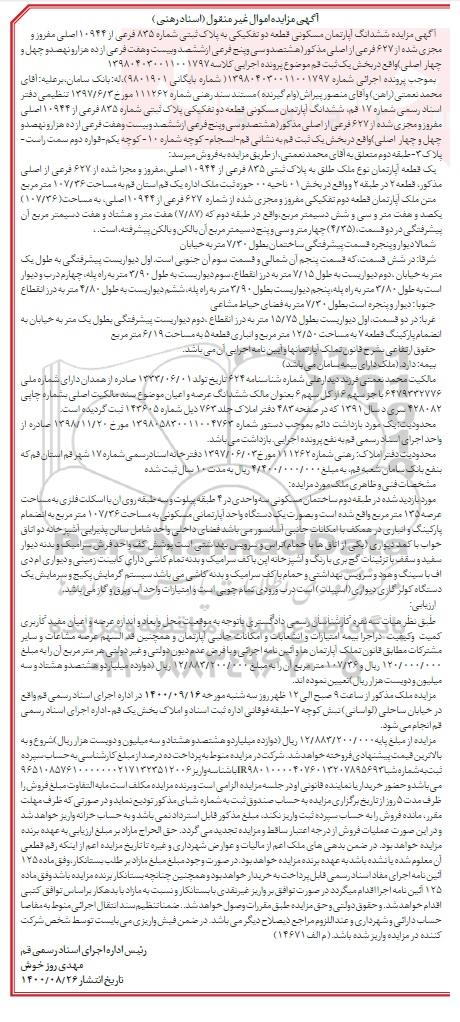 آگهی مزایده اموال غیر منقول (اسناد رهنی)
آگهی مزایده ششدانگ آپارتمان مسکونی قطعه دو تفکیکی به پلاک ثبتی شماره ۸۳۵ فرعی از ۱۰۹۴۴ اصلی مفروز و
مجزی شده از ۶۲۷ فرعی از اصلی مذکور (هشتصدو سی وپنج فرعی ازششصد وبیست وهفت فرعی از ده هزارو نهصدو چهل و
چهار اصلی) واقع در بخش یک ثبت قم موضوع پرونده اجرایی کلاسه ۱۳۹۸۰۴۰۳۰۰۱۱۰۰۱۷۹۷
بموجب پرونده اجرائی شماره ۱۳۹۸۰۴۰۳۰۰۱۱۰۰۱۷۹۷( شماره بایگانی ۹۸۰۱۹۰۱)،له: بانک سامان،برعلیه: آقای
محمد نعمتی (راهن) وآقای منصور پیراش(وام گیرنده )مستند سند رهنی شماره ۱۱۱۲۶۲ مورخ ۱۳۹۷/۶/۳ تنظیمی دفتر
اسناد رسمی شماره ۱۷ قم، ششدانگ آپارتمان مسکونی قطعه دو تفکیکی پلاک ثبتی شماره ۸۳۵ فرعی از ۱۰۹۴۴ اصلی
مفروز و مجزی شده از ۶۲۷ فرعی از اصلی مذکور (هشتصدو سی وپنج فرعی ازششصد وبیست وهفت فرعی از ده هزارو نهصدو
چهل و چهار اصلی)واقع در بخش یک ثبت قم به نشانی قم-انسجام-کوچه شماره ۱۰-کوچه یکم-قواره دوم سمت راست-
پلاک ۳-طبقه دوم متعلق به آقای محمد نعمتی،از طریق مزایده به فروش میرسد:
یک قطعه آپارتمان نوع ملک طلق به پلاک ثبتی ۸۳۵ فرعی از ۱۰۹۴۴ اصلی،مفروز و مجزا شده از ۶۲۷ فرعی از اصلی
مذکور، قطعه ۲ در طبقه ۲ و واقع در بخش ۰۱ ناحیه ۰۰ حوزه ثبت ملک اداره یک قم استان قم به مساحت ۱۰۷/۳۶ متر مربع
متن ملک آپارتمان قطعه دوم تفکیکی مفروز و مجزی شده از شماره ۶۲۷ فرعی از ۱۰۹۴۴اصلی، به مساحت(۱۰۷/۳۶)
یکصد و هفت متر و سی و شش دسیمتر مربع،واقع در طبقه دوم که (۷/۸۷) هفت متر و هشتاد و هفت دسیمتر مربع آن
پیشرفتگی در دو قسمت،(۴/۳۵) چهار متر و سی و پنج دسیمتر مربع آن بالکن و بالکن پیشرفته،است،،
شمالا دیوار و پنجره قسمت پیشرفتگی ساختمان بطول ۷/۳۰ متر به خیابان
شرقا: در شش قسمت،که قسمت پنجم آن شمالی و قسمت سوم آن جنوبی است. اول دیواریست پیشرفتگی به طول یک
متر به خیابان ،دوم دیواریست به طول ۷/۱۵ متر به درز انقطاع، سوم دیواریست به طول ۳/۹۰ متر به راه پله،چهارم درب و دیوار
است به طول ۳/۸۰ متر به راه پله،پنجم دیواریست بطول ۳/۹۰ متر به راه پله، ششم دیواریست به طول ۴/۸۰ متر به درز انقطاع
جنوبا: دیوار و پنجره است بطول ۷/۳۰ متر به فضای حیاط مشاعی
غربا: در دو قسمت، اول دیواریست بطول ۱۵/۷۵ متر به درز انقطاع ،دوم دیواریست پیشرفتگی بطول یک متر به خیابان به
انضمام پارکینگ قطعه ۷ به مساحت ۱۲/۵۰ متر مربع و انباری قطعه ۵ به مساحت ۶/۱۹ متر مربع
حقوق ارتفاعی بشرح قانون تملک آپارتمانها و آیین نامه اجرایی آن می باشد.
بیمه: دارد. (ملک دارای بیمه سامان می باشد)
مالکیت محمد نعمتی فرزند دیدار علی شماره شناسنامه ۶۲۴ تاریخ تولد ۱۳۳۳/۰۶/۰۱ صادره از همدان دارای شماره ملی
۶۴۷۹۳۳۲۷۷۶ با جز سهم ۶ از کل سهم ۶ بعنوان مالک ششدانگ عرصه و اعیان موضوع سند مالکیت اصلی بشماره چاپی
۴۲۸۰۸۲ سری د سال ۱۳۹۱ که در صفحه ۴۸۳ دفتر املاک جلد ۷۶۳ ذیل شماره ۱۴۳۶۰۵ ثبت گردیده است.
محدودیت: یک مورد بازداشت دائم بموجب دستور شماره ۱۳۹۸۰۵۸۳۰۰۱۱۰۰۴۷۶۳ مورخ ۱۳۹۸/۱۱/۲۰ صادره از
واحد اجرای اسناد رسمی قم به نفع پرونده اجرایی، بازداشت می باشد.
محدودیت دفتر املاک: رهنی شماره ۱۱۱۲۶۲ مورخ ۱۳۹۷/۰۶/۰۳ دفترخانه اسناد رسمی شماره ۱۷ شهر قم استان قم که
بنفع بانک سامان شعبه قم، به مبلغ ۴/۴۰۰/۰۰۰/۰۰۰ ریال به مدت ۱۰ سال ثبت شده
مشخصات فنی و ظاهری ملک مورد مزایده:
مورد بازدید شده در طبقه دوم ساختمان مسکونی سه واحدی در ۴ طبقه پیلوت و سه طبقه روی ان با اسکلت فلزی به مساحت
عرصه ۱۳۵ متر مربع واقع شده است و بصورت یک دستگاه واحد آپارتمانی مسکونی به مساحت ۱۰۷/۳۶ متر مربع به انضمام
پارکینگ و انباری در همکف با امکانات جانبی آسانسور می باشد فضای داخلی واحد شامل سالن پذیرایی آشپزخانه دو اتاق
خواب با کمد دیواری (یکی از اتاق ها با حمام) تراس و سرویس بهداشتی است پوشش کف واحد فرش سرامیک و بدنه دیوار
سفید و سقف با تزئینات گچ بری با رنگ و آشپزخانه این با کف سرامیک و بدنه تمام کاشی دارای کابینت زمینی و دیواری ام دی
اف با سینگ و هود و سرویس بهداشتی و حمام با کف سرامیک و بدنه کاشی می باشد سیستم گرمایش پکیج و سرمایش یک
دستگاه کولر گازی دیواری (اسپیلت) است درب ورودی تمام چوبی است و امتیازات واحد آب وبرق و گاز می باشد.
ارزیابی:
طبق نظر هیات سه نفره کارشناسان رسمی دادگستری باتوجه به موقعیت محل وابعاد و اندازه عرصه و اعیان مفید کاربری
کمیت وکیفیت دراجرا بیمه امتیازات و انشعابات و امکانات جانبی آپارتمان و همچنین قد السهم عرصه مشاعات و سایر
مشترکات مطابق قانون تملک آپارتمان ها و آئین نامه اجرائی وبا فرض عدم دیون دولتی و غیر دولتی هر متر مربع آن را به مبلغ
۱۲۰/۰۰۰/۰۰۰ ریال و ۱۰۷/۳۶ متر مربع آن را به مبلغ ۱۲/۸۸۳/۲۰۰/۰۰۰ ریال (دوازده میلیاردو هشتصدو هشتاد و سه
میلیون و دویست هزار ریال) تعیین نموده اند.
مزایده ملک مذکور از ساعت ۹ صبح الی ۱۲ ظهر روز سه شنبه مورخه ۱۴۰۰/۰۹/۱۶ در اداره اجرای اسناد رسمی قم واقع
در خیابان ساحلی (لواسانی) نبش کوچه ۷-طبقه فوقانی اداره ثبت اسناد و املاک بخش یک قم-اداره اجرای اسناد رسمی
قم انجام می شود.
مزایده از مبلغ پایه ۱۲/۸۸۳/۲۰۰/۰۰۰ ریال (دوازده میلیاردو هشتصدو هشتاد و سه میلیون و دویست هزار ریال)شروع و به
بالاترین قیمت پیشنهادی فروخته خواهد شد. شرکت در مزایده منوط به پرداخت ده درصد از مبلغ کارشناسی به حساب سپرده
ثبت به شماره شبا
می باشد و حضور خریدار یا نماینده قانونی او در جلسه مزایده الزامی است و برنده مزایده مکلف است مابه التفاوت مبلغ فروش را
ظرف مدت ۵ روز از تاریخ برگزاری مزایده به حساب صندوق ثبت به شماره شبای مذکور تودیع نماید و در صورتی که ظرف مهلت
مقرر، مانده فروش را به حساب سپرده ثبت واریز نکند، مبلغ مذکور قابل استرداد نمی باشد و به حساب خزانه واریز خواهد شد
و در این صورت عملیات فروش از درجه اعتبار ساقط و مزایده تجدید می گردد. حق الحراج مازاد بر مبلغ ارزیابی به عهده برنده
مزایده خواهد بود. در ضمن بدهی های ملک اعم از مالیات و عوارض شهرداری و غیره تا تاریخ مزایده اعم از اینکه رقم قطعی
آن معلوم شده یا نشده باشد به عهده برنده مزایده خواهد بود.در صورت وجود مبلغ مازاد بر طلب بستانکار،وفق ماده ۱۲۵
آئین نامه اجرای مفاد اسناد رسمی قابل پرداخت به خریدار خواهد بود و همچنین چنانچه بستانکار برنده مزایده باشد وفق ماده
۱۲۵ آئین نامه اجرا اقدام میگردد در صورت توافق بر واریز غیر نقدی با بستانکار و نسبت به مازاد با بدهکار براساس توافق کتبی
اقدام خواهد شد. و حقوق دولتی و حق مزایده طبق مقررات وصول خواهد شد.. ضمنا تنظیم سند انتقال اجرائی منوط به مفاصا
حساب دارائی و شهرداری و عنداللزوم مراجع ذیصلاح دیگر می باشد. در ضمن فیش واریزی می بایست توسط شخص شرکت
کننده در مزایده واریز شده باشد.( م الف ۱۴۶۷۱)
رئیس اداره اجرای اسناد رسمی قم
مهدی روز خوش
تاریخ انتشار ۱۴۰۰/۰۸/۲۶